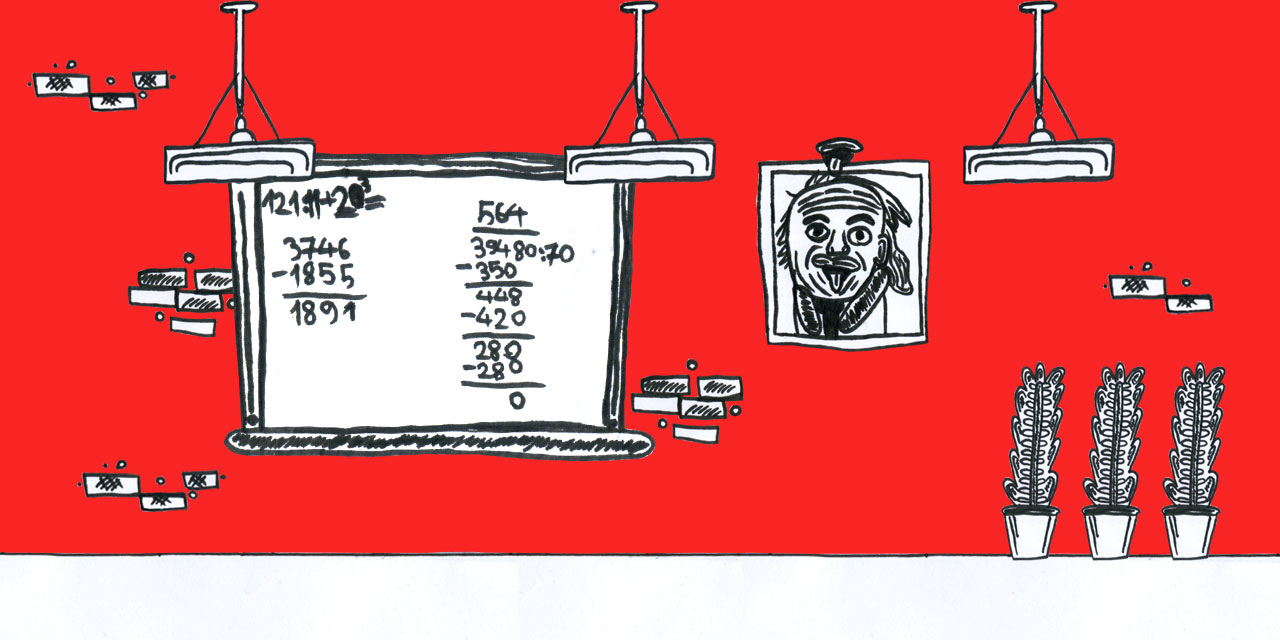 121:11+20³=
3746
-1855
1891
564
39480:70
-350
448
-420
288
-288
0